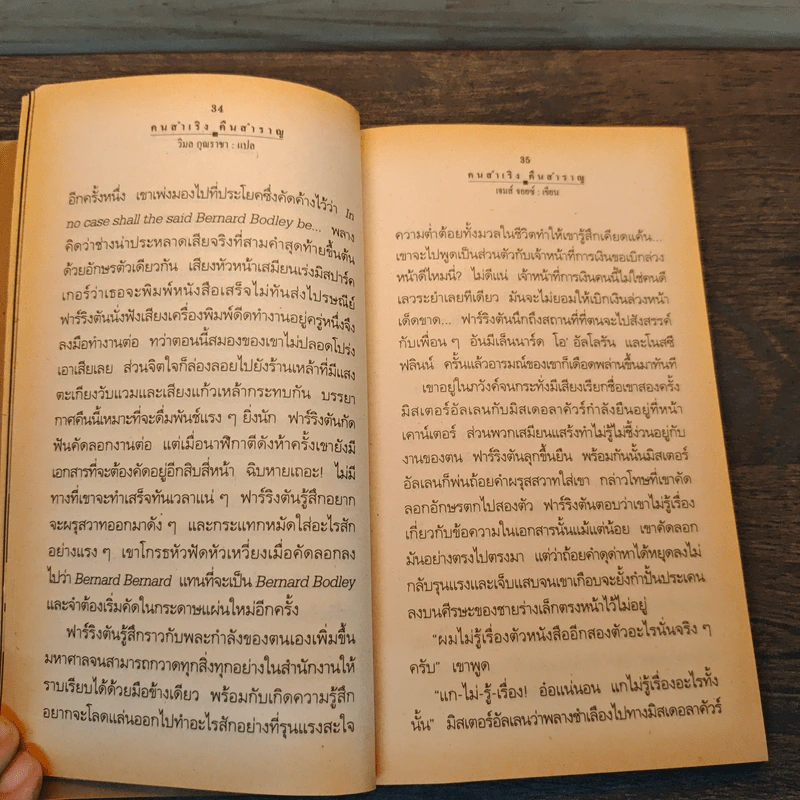 34
คนสำเริง คืนสำราญ
วิมล กุณราชา : แปล
อีกครั้งหนึ่ง เขาเพ่งมองไปที่ประโยคซึ่งคัดค้างไว้ว่า In
no case shall the said Bernard Bodley be... พลาง
คิดว่าช่างน่าประหลาดเสียจริงที่สามคำสุดท้ายขึ้นต้น
ด้วยอักษรตัวเดียวกัน เสียงหัวหน้าเสมียนเร่งมิสปาร์ค
เกอร์ว่าเธอจะพิมพ์หนังสือเสร็จไม่ทันส่งไปรษณีย์
ฟาร์ริงตันนั่งฟังเสียงเครื่องพิมพ์ดีดทำงานอยู่ครู่หนึ่งจึง
ลงมือทำงานต่อ ทว่าตอนนี้สมองของเขาไม่ปลอดโปร่ง
เอาเสียเลย ส่วนจิตใจก็ล่องลอยไปยังร้านเหล้าที่มีแสง
ตะเกียงวับแวมและเสียงแก้วเหล้ากระทบกัน บรรยา
กาศคืนนี้เหมาะที่จะดื่มพันช์แรง ๆ ยิ่งนัก ฟาร์ริงตันกัด
ฟันคัดลอกงานต่อ แต่เมื่อนาฬิกาตีดังห้าครั้งเขายังมี
เอกสารที่จะต้องคัดอยู่อีกสิบสี่หน้า ฉิบหายเถอะ! ไม่มี
ทางที่เขาจะทำเสร็จทันเวลาแน่ ๆ ฟาร์ริงตันรู้สึกอยาก
จะผรุสวาทออกมาดัง ๆ และกระแทกหมัดใส่อะไรสัก
อย่างแรง ๆ เขาโกรธหัวฟัดหัวเหวี่ยงเมื่อคัดลอกลง
ไปว่า Bernard Bernard แทนที่จะเป็น Bernard Bodley
และจำต้องเริ่มคัดในกระดาษแผ่นใหม่อีกครั้ง
ฟาร์ริงตันรู้สึกราวกับพละกำลังของตนเองเพิ่มขึ้น
มหาศาลจนสามารถกวาดทุกสิ่งทุกอย่างในสำนักงานให้
ราบเรียบได้ด้วยมือข้างเดียว พร้อมกับเกิดความรู้สึก
อยากจะโลดแล่นออกไปทำอะไรสักอย่างที่รุนแรงสะใจ
35
คนสำเริง คืนสำราญ
เจมส์ จอยซ์ : เขียน
ความต่ำต้อยทั้งมวลในชีวิตทำให้เขารู้สึกเคียดแค้น...
เขาจะไปพูดเป็นส่วนตัวกับเจ้าหน้าที่การเงินขอเบิกล่วง
หน้าดีไหมนี่? ไม่ดีแน่ เจ้าหน้าที่การเงินคนนี้ไม่ใช่คนดี
เลวระยำเลยทีเดียว มันจะไม่ยอมให้เบิกเงินล่วงหน้า
เด็ดขาด... ฟาร์ริงตันนึกถึงสถานที่ที่ตนจะไปสังสรรค์
กับเพื่อน ๆ อันมีเล็นนาร์ด โอ' อัลโลรัน และโนสซี
ฟลินน์ ครั้นแล้วอารมณ์ของเขาก็เดือดพล่านขึ้นมาทันที
เขาอยู่ในภวังค์จนกระทั่งมีเสียงเรียกชื่อเขาสองครั้ง
มิสเตอร์อัลเลนกับมิสเดอลาคัวร์กำลังยืนอยู่ที่หน้า
เคาน์เตอร์ ส่วนพวกเสมียนแสร้งทำไม่รู้ไม่ชี้ง่วนอยู่กับ
งานของตน ฟาร์ริงตันลุกขึ้นยืน พร้อมกันนั้นมิสเตอร์
อัลเลนก็พ่นถ้อยคำผรุสสวาทใส่เขา กล่าวโทษที่เขาคัด
ลอกอักษรตกไปสองตัว ฟาร์ริงตันตอบว่าเขาไม่รู้เรื่อง
เกี่ยวกับข้อความในเอกสารนั้นแม้แต่น้อย เขาคัดลอก
มันอย่างตรงไปตรงมา แต่ว่าถ้อยคำดุด่าหาได้หยุดลงไม่
กลับรุนแรงและเจ็บแสบจนเขาเกือบจะยั้งกำปั้นประเคน
ลงบนศีรษะของชายร่างเล็กตรงหน้าไว้ไม่อยู่
“ผมไม่รู้เรื่องตัวหนังสืออีกสองตัวอะไรนั่นจริง ๆ
ครับ” เขาพูด
“แก-ไม่-รู้-เรื่อง! อ๋อแน่นอน แกไม่รู้เรื่องอะไรทั้ง
นั้น” มิสเตอร์อัลเลนว่าพลางชำเลืองไปทางมิสเดอลาคัวร์